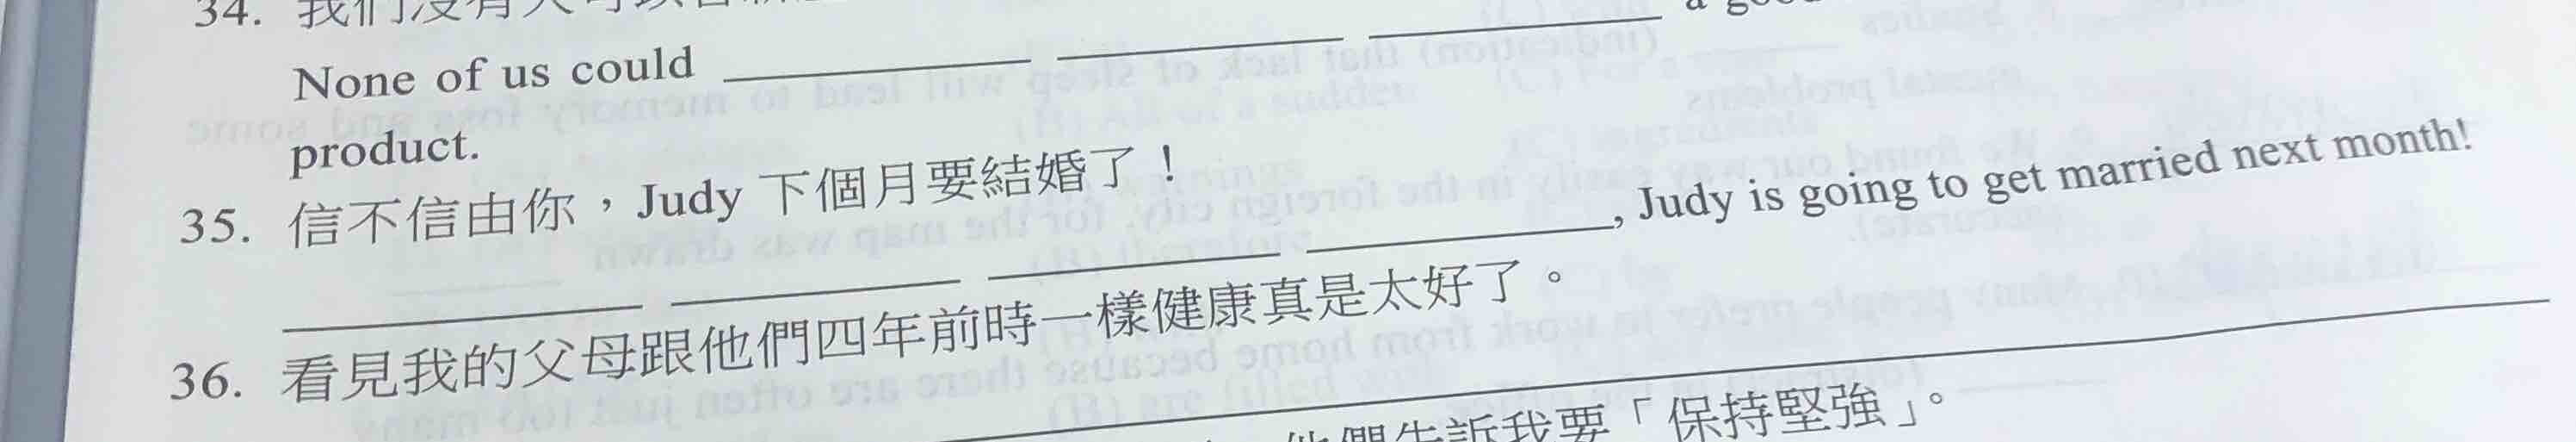 34. 我們沒有人可以
None of us could ___ ___ ___ a
product.
35. 信不信由你，Judy 下個月要結婚了！
___ ___ ___ ___, Judy is going to get married next month!
36. 看見我的父母跟他們四年前時一樣健康真是太好了。
他們告訴我要「保持堅強」。